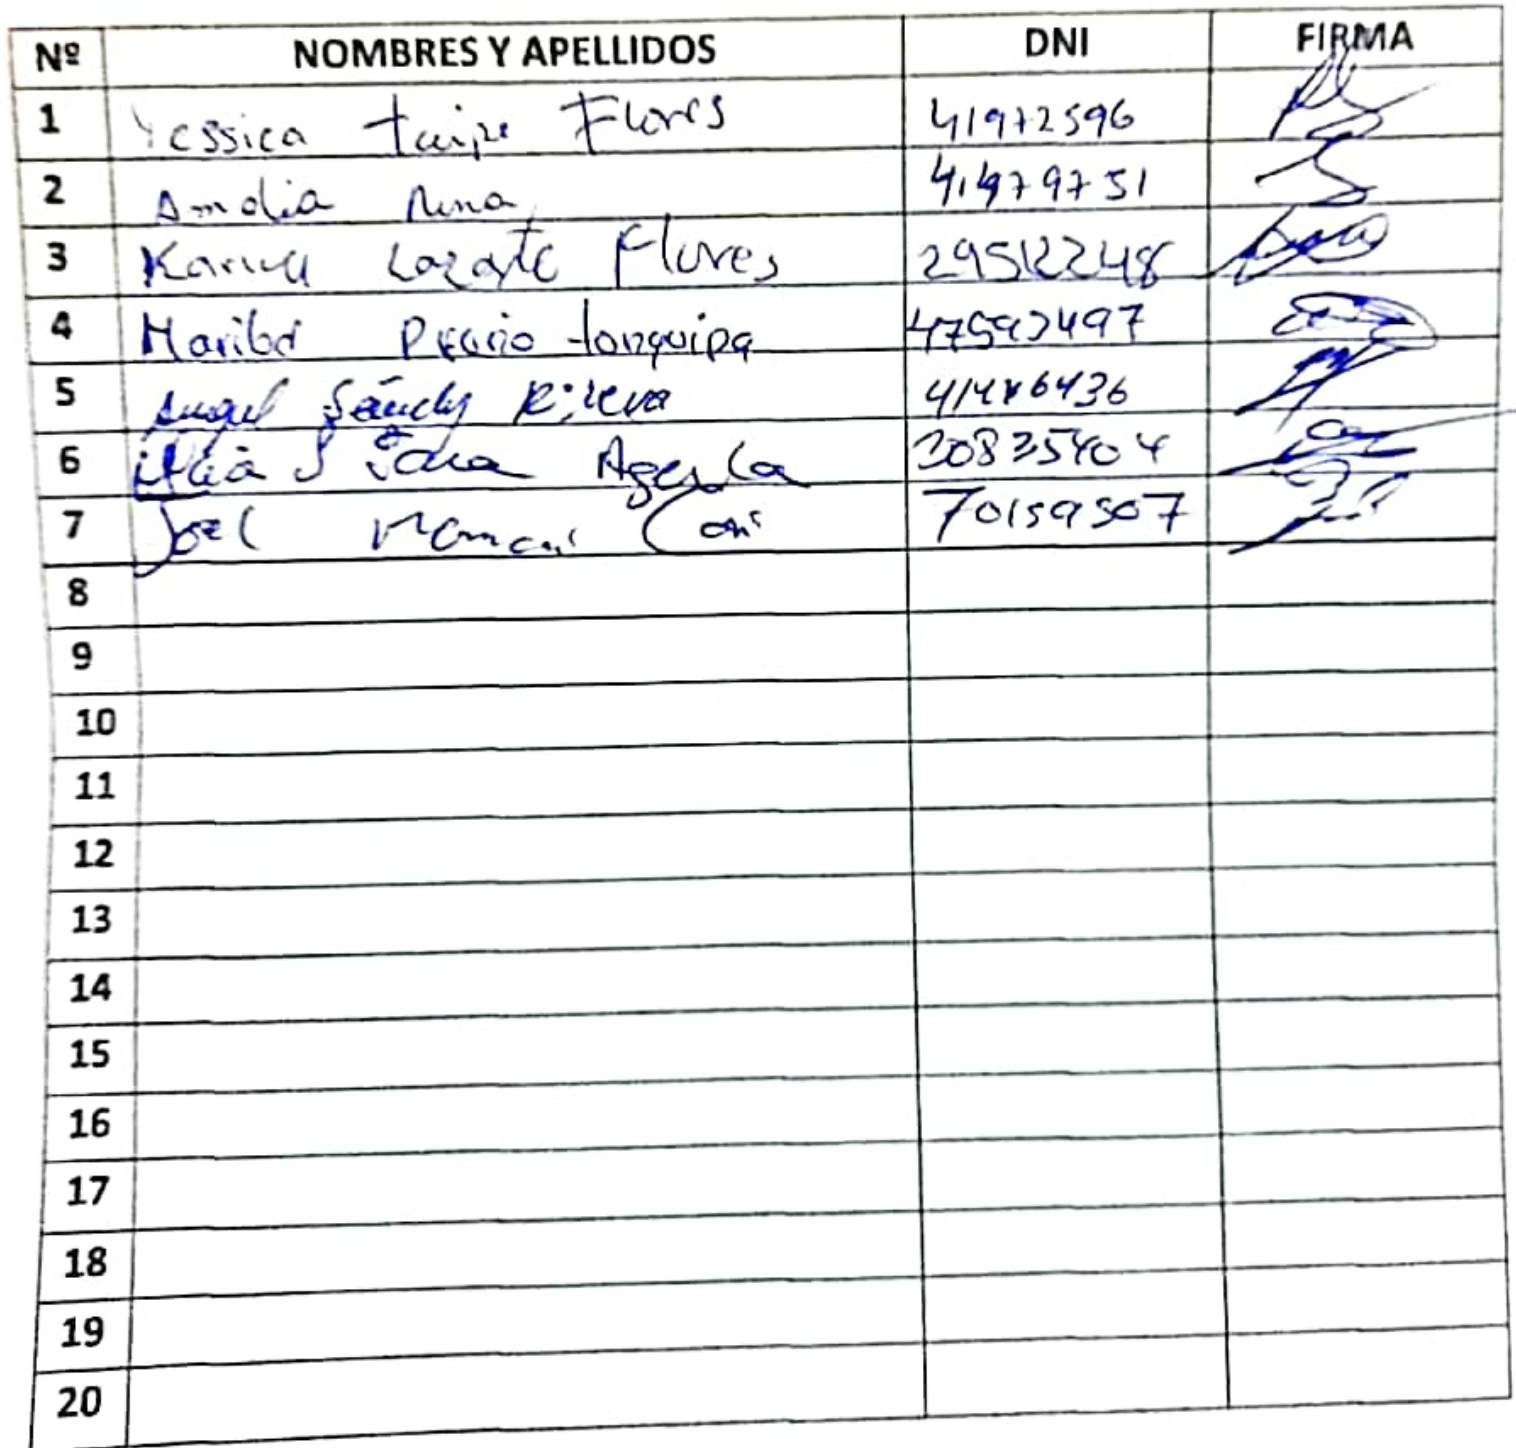 Nº NOMBRES Y APELLIDOS DNI FIRMA
1 Yessica Taipe Flores 41972596
2 Amelia Nina 41479751
3 Karina Lazarte Flores 29512248
4 Maribel 47592497
5 Angel 41486436
6 30835404
7 Joel Mamani Cani 70159507
8
9
10
11
12
13
14
15
16
17
18
19
20